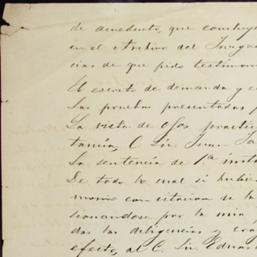 de acueducto, que concluyo
en el Archivo del Juzga
cias de que pido testimon
El escrito de demanda y c
Las pruebas presentadas
La vista de ojos practic
tamía, C. Lic. Juan
La sentencia de 1ª insta
De todo lo cual si hubie
monio con citacion de la
das las diligencias y
efecto, al C. Lic. Eduar